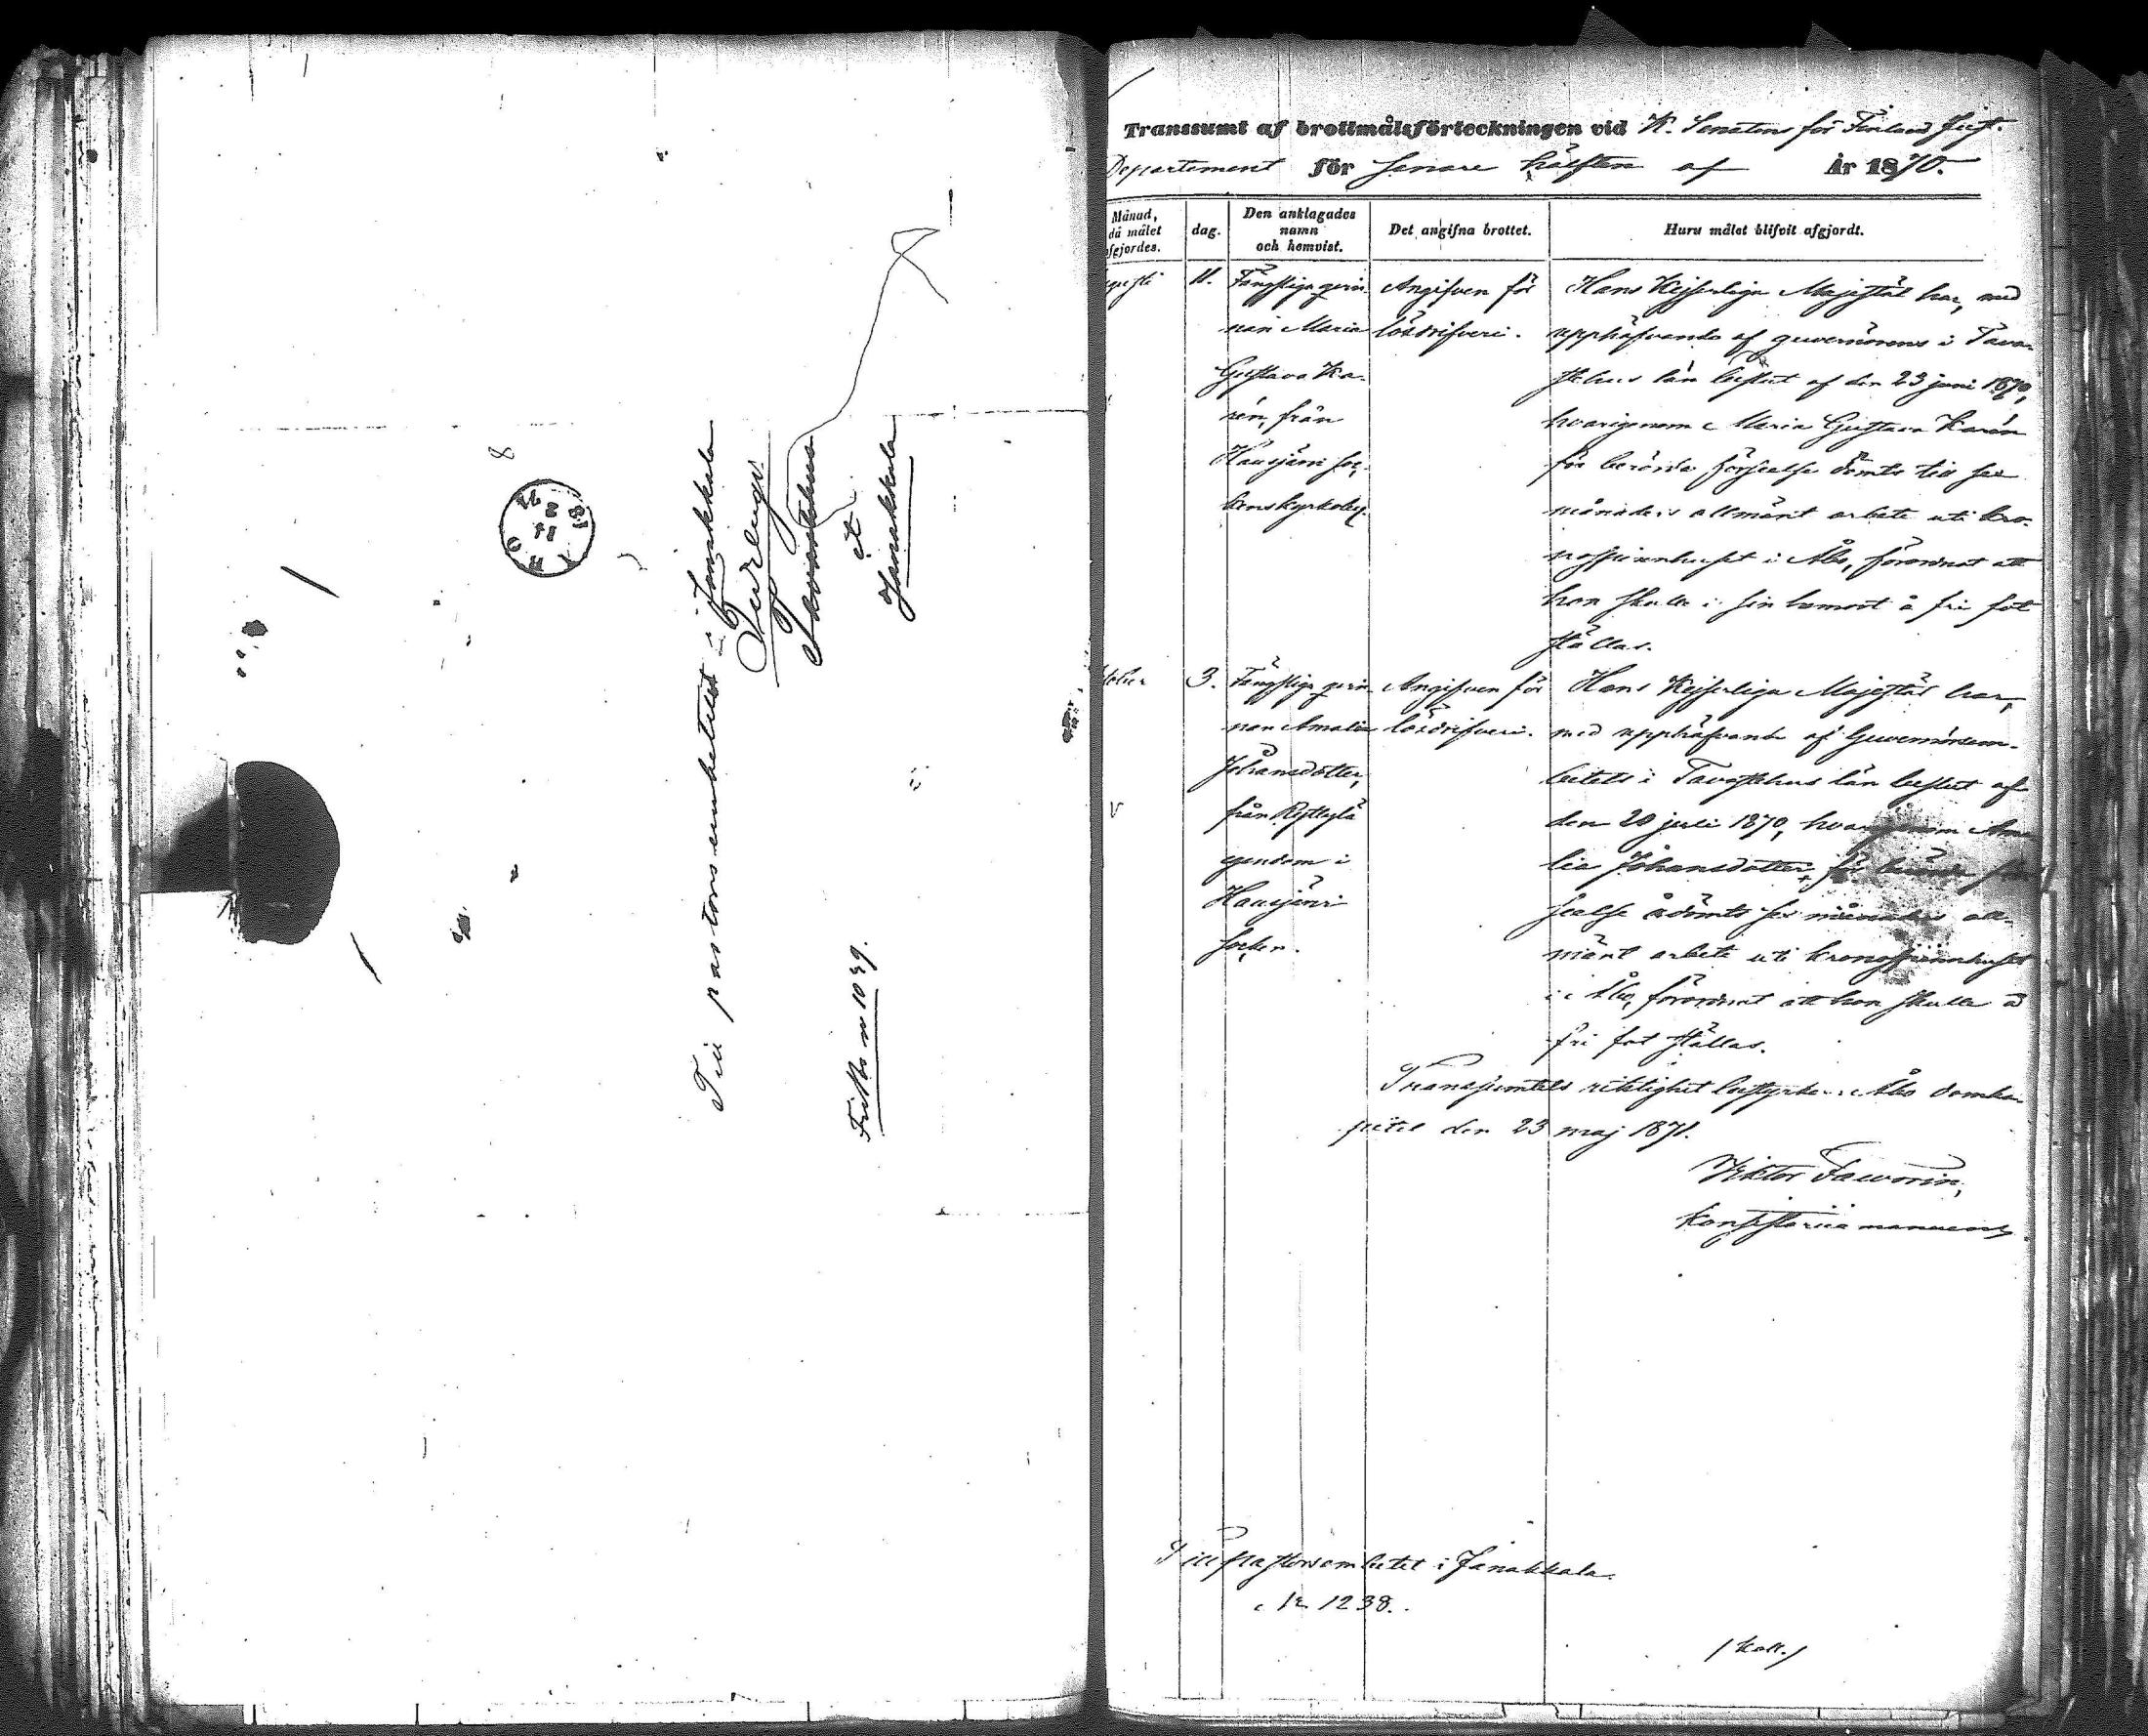 Till pastorsembetet i Janakkala
Turenge.
Tavastehus
et
Janakkala
Fribr. n 1039.
8
Transsumt af brottmålsförteckningen vid K. Senatens för Finland Just.
Departement för senare hälften af År 1870.
Månad, då målet afgjordes.
dag.
Den anklagades namn och hemvist.
Det angifna brottet.
Huru målet blifvit afgjordt.
gusti
11.
Fängsliga qvin-
nan Maria
Gustava Ka-
rén, från
Hausjärvi soc-
kens kyrkoby.
Angifven för
lösdrifveri.
Hans Kejserliga Majestät har, med
upphäfvande af guvernörens i Tava-
stehus län beslut af den 23 juni 1870,
hvarigenom Maria Gustava Karén
för berörda förseelse dömts till sex
månaders allmänt arbete uti kro-
nospinnhuset i Åbo, förordnat att
hon skulle i sin hemort å fri fot
ställas.
tober
3.
Fängsliga qvin-
nan Amalia
Johansdotter,
från Ryttylä
egendom i
Hausjärvi
socken.
Angifven för
lösdrifveri.
Hans Kejserliga Majestät har,
med upphäfvande af Guvernörsem-
betets i Tavastehus län beslut af
den 20 juli 1870, hvarigenom Ama-
lia Johansdotter, för berörda för-
seelse ådömts sex månaders all-
mänt arbete uti kronospinnhuset
i Åbo, förordnat att hon skulle å
fri fot ställas.
Transsumtets riktighet bestyrker. Åbo domka-
pitel den 23 maj 1871.
Viktor Faworin,
konsistorii amanuens
Till pastorsembetet i Janakkala.
N 1238.
/ koll. /